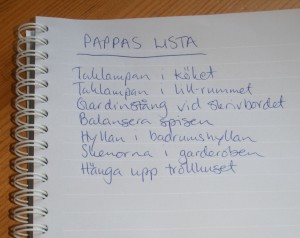 PAPPAS LISTA
Taklampan i köket
Taklampan i lill-rummet
Gardinstång vid skrivbordet
Balansera spisen
Hyllan i badrumshyllan
Skenorna i garderoben
Hänga upp trollhuset